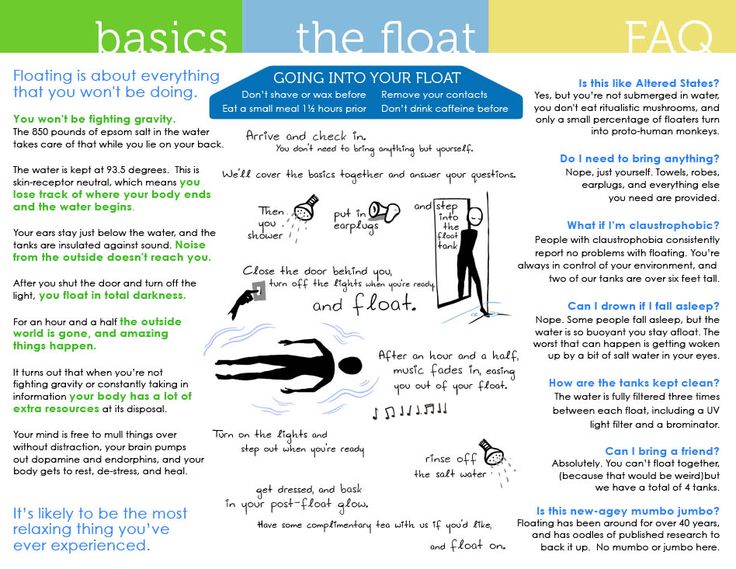 basics
Floating is about everything
that you won't be doing.
You won't be fighting gravity.
The 850 pounds of epsom salt in the water
takes care of that while you lie on your back.
The water is kept at 93.5 degrees.  This is
skin-receptor neutral, which means you
lose track of where your body ends
and the water begins.
Your ears stay just below the water, and the
tanks are insulated against sound. Noise
from the outside doesn't reach you.
After you shut the door and turn off the
light, you float in total darkness.
For an hour and a half the outside
world is gone, and amazing
things happen.
It turns out that when you're not
fighting gravity or constantly taking in
information your body has a lot of
extra resources at its disposal.
Your mind is free to mull things over
without distraction, your brain pumps
out dopamine and endorphins, and your
body gets to rest, de-stress, and heal.
It's likely to be the most
relaxing thing you've
ever experienced.
the float
GOING INTO YOUR FLOAT
Don't shave or wax before
Remove your contacts
Eat a small meal 1½ hours prior
Don't drink caffeine before
Arrive and check in.
You don't need to bring anything but yourself.
We'll cover the basics together and answer your questions.
Then
you
shower
put in
earplugs
and step
into
the
float
tank
Close the door behind you,
turn off the lights when you're ready,
and float.
After an hour and a half,
music fades in, easing
you out of your float.
Turn on the lights and
step out when you're ready
rinse off
the salt water
get dressed, and bask
in your post-float glow.
Have some complimentary tea with us if you'd like,
and float on.
FAQ
Is this like Altered States?
Yes, but you're not submerged in water,
you don't eat ritualistic mushrooms, and
only a small percentage of floaters turn
into proto-human monkeys.
Do I need to bring anything?
Nope, just yourself. Towels, robes,
earplugs, and everything else
you need are provided.
What if I'm claustrophobic?
People with claustrophobia consistently
report no problems with floating. You're
always in control of your environment, and
two of our tanks are over six feet tall.
Can I drown if I fall asleep?
Nope. Some people fall asleep, but the
water is so buoyant you stay afloat. The
worst that can happen is getting woken
up by a bit of salt water in your eyes.
How are the tanks kept clean?
The water is fully filtered three times
between each float, including a UV
light filter and a brominator.
Can I bring a friend?
Absolutely. You can't float together,
(because that would be weird)but
we have a total of 4 tanks.
Is this new-agey mumbo jumbo?
Floating has been around for over 40 years,
and has oodles of published research to
back it up.  No mumbo or jumbo here.